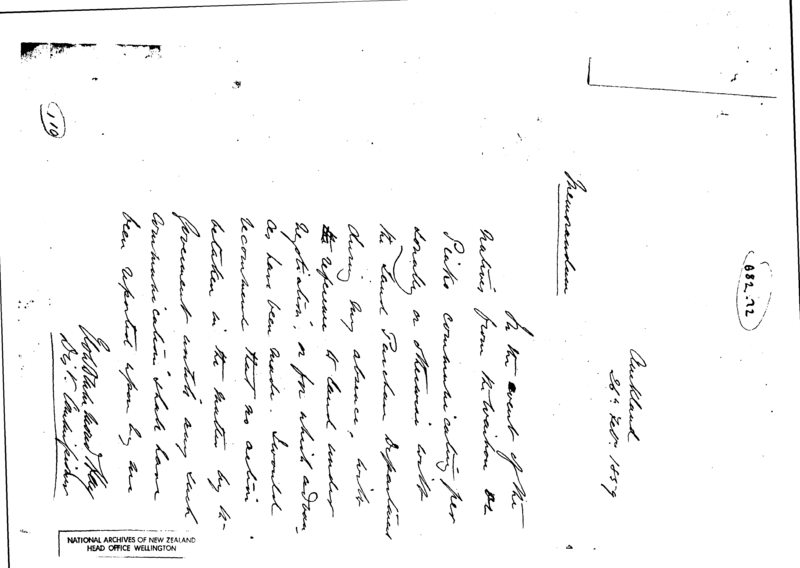 882.22
Auckland
26th Feb. 1859
Memorandum
In the event of the
Natives from the Wairoa or
Piako communicating per
sonally or otherwise with
the Land Purchase Department
during my absence, with
reference to land under
negotiation, or for which advan-
ces have been made. I would
recommend that no action
be taken in the matter by the
Government until any such
communication shall have
been reported upon by me
Dist. Commissioner
110
NATIONAL ARCHIVES OF NEW ZEALAND
HEAD OFFICE WELLINGTON